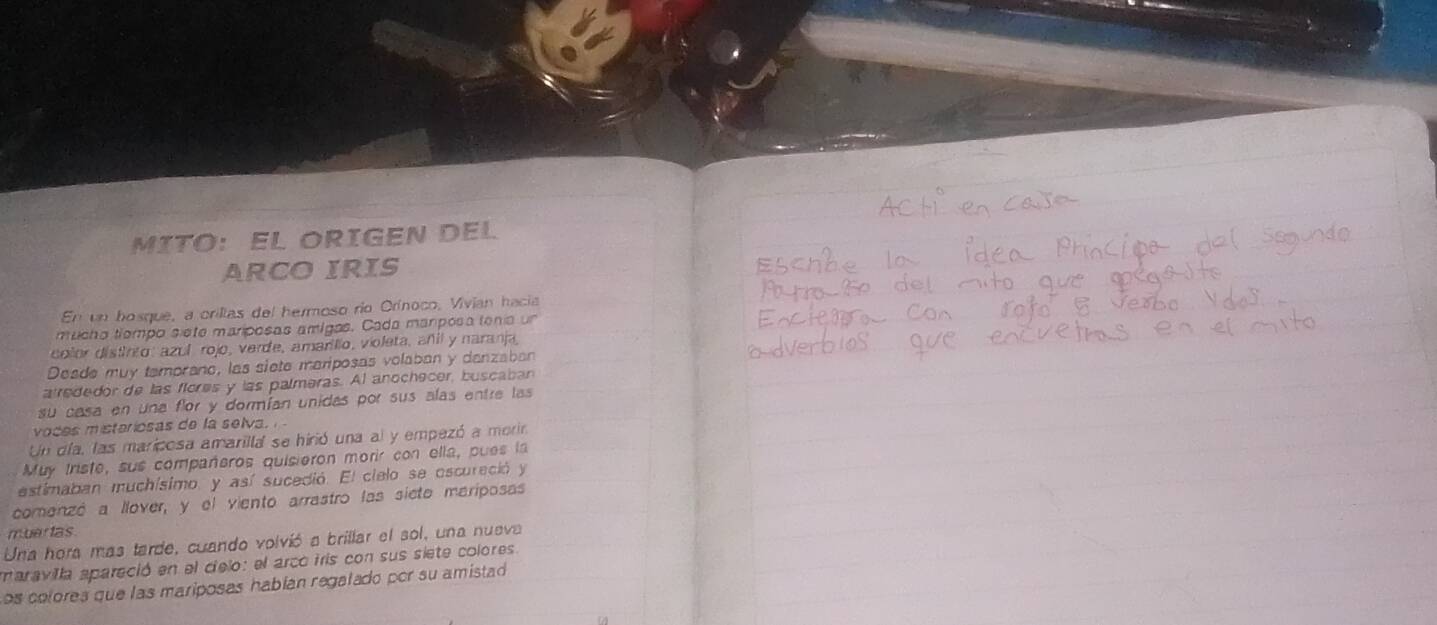 MITO: EL ORIGEN DEL
ARCO IRIS
En un bosque, a orillas del hermoso río Orinoco, Vivian hacia
mucho tiempo siete mariposas amigas. Cada mariposa tenia un
color distinto: azul, rojo, verde, amarillo, violeta, añil y naranja,
Desde muy temprano, las siete mariposas volaban y danzaban
alrededor de las flores y las palmeras. Al anochecer, buscaban
su casa en una flor y dormían unidas por sus alas entre las
voces misteriosas de la selva.
Un día, las mariposa amarilla se hirió una al y empezó a morir.
Muy triste, sus compañeros quisieron morir con ella, pues la
estimaban muchísimo, y así sucedió. El cielo se oscureció y
comenzó a llover, y el viento arrastro las siete mariposas
muertas.
Una hora mas tarde, cuando volvió a brillar el sol, una nueva
maravilla apareció en el cielo: el arco iris con sus siete colores.
os colores que las mariposas habían regalado por su amistad
Acti en casa
Escribe la idea principa del segundo
Parrafo del mito que pegaste
con rojo verbo y dos
adverbios que encuetras en el mito